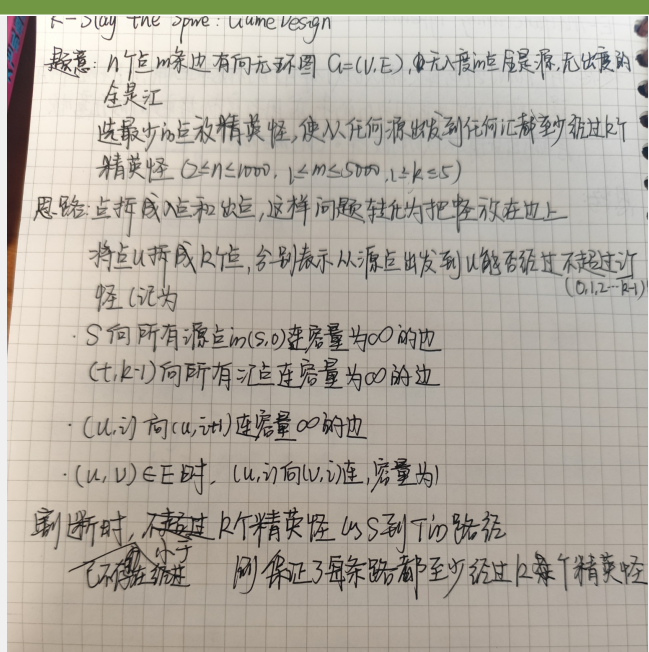 K-Slay the Spire: Game Design
题意: n个点m条边有向无环图 G=(V,E), 无入度的点全是源,无出度的
全是汇
选最少的点放精英怪,使从任何源出发到任何汇都至少经过k个
精英怪 (2≤n≤1000, 1≤m≤5000, 1≤k≤5)
思路: 点拆成入点和出点,这样问题转化为把怪放在边上
将点u拆成k个点,分别表示从源点出发到u能否经过不超过i只
(0,1,2…k-1)
怪 (记为
· S向所有源点in(s,0)连容量为∞的边
(t,k-1)向所有汇点连容量为∞的边
· (u,i)向(u,i+1)连容量∞的边
· (u,v)∈E时, (u,i)向(v,i)连,容量为1
割断时, 不超过k个精英怪的S到T的路径
小于
已不存在经过 则保证了每条路都至少经过k个精英怪